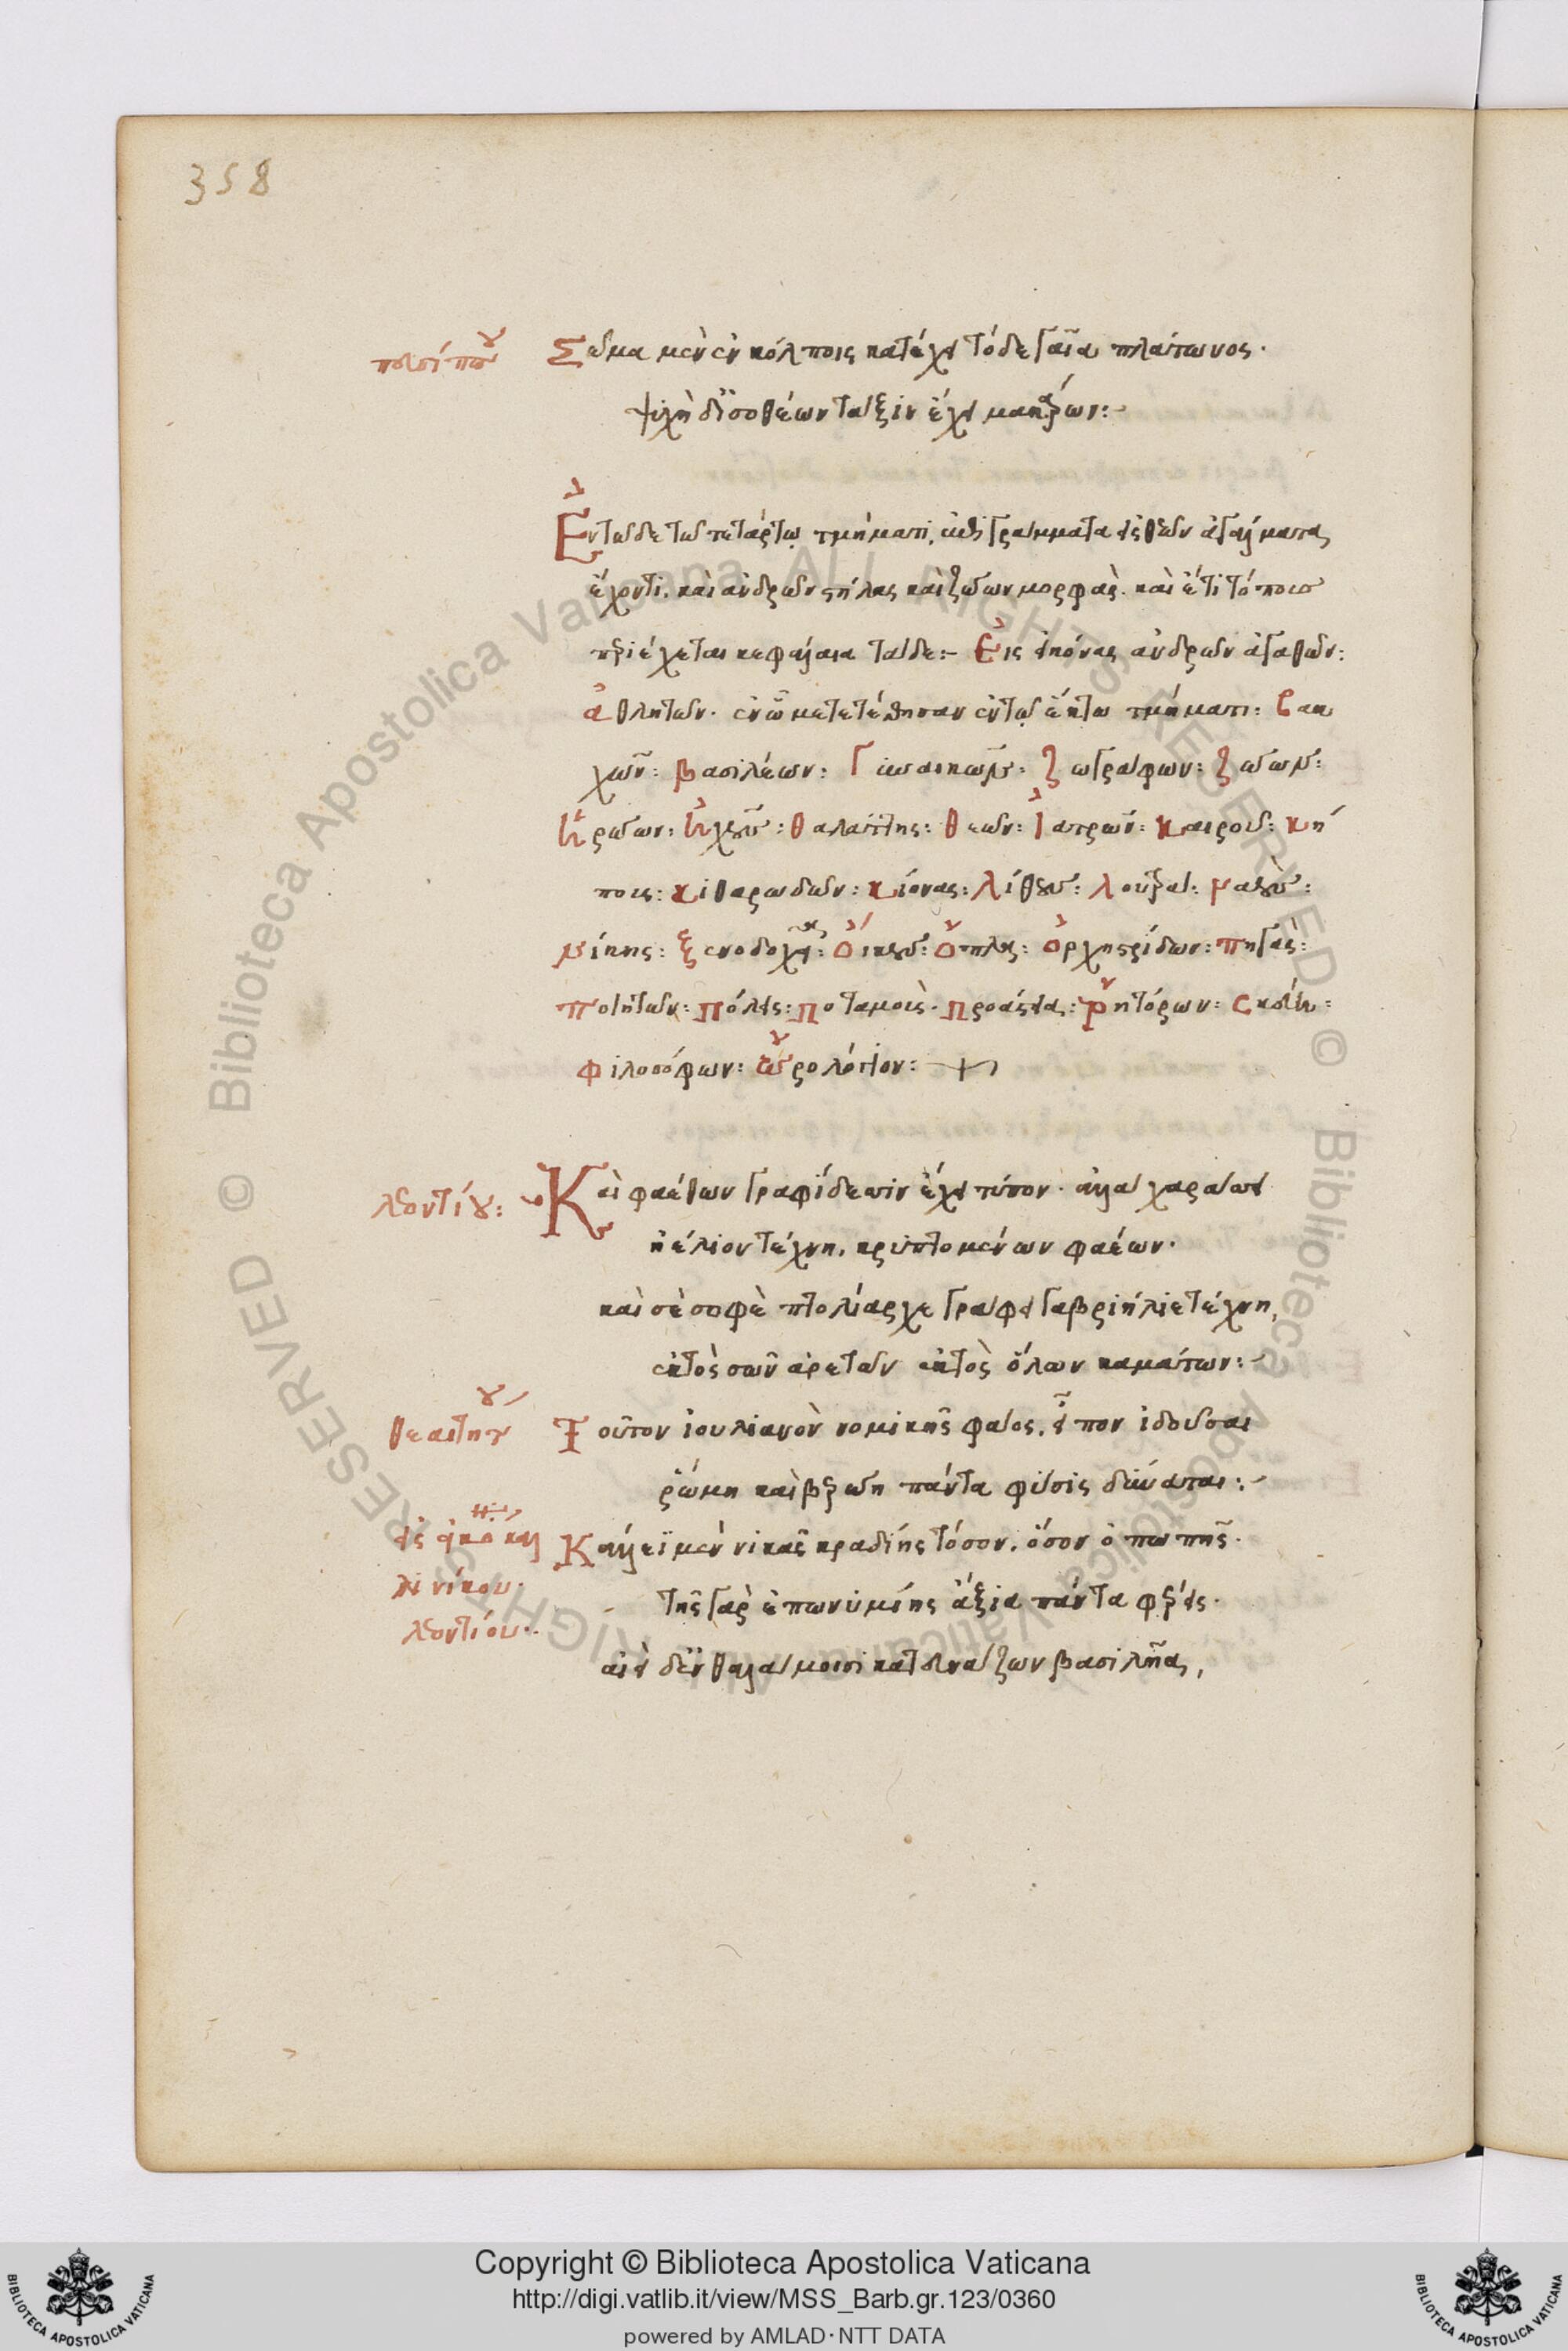 358
σπευσίππου Σῶμα μὲν ἐν κόλποις κατέχει τόδε γαῖα πλάτωνος.
ψυχὴ δ' ἰσοθέων τάξιν ἔχει μακάρων:
Ἐν τῶδε τῶ τετάρτω τμήματι, ἐπιγράμματα εἰς θεῶν ἀγάλματα
ἔχοντι. καὶ ἀνδρῶν στήλας καὶ ζώων μορφὰς. καὶ ἔτι τόπους
περιέχεται κεφάλαια τάδε:- Εἰς εἰκόνας ἀνδρῶν ἀγαθῶν:
ἀθλητῶν. ἐν ὧ μετετέθησαν ἐν τῶ ἕκτω τμήματι: βακ
χῶν: βασιλέων: Γυναικῶν: ζωγράφων: ζώων:
Ἡρώων: θαλάττης: θεῶν: Ἰατρῶν: καιροῦ: κή
πους: κιθαρωδῶν: κίονας: λίθους: λουτρά: ναούς:
νίκης: ξενοδοχεῖα: Οἴκους: ὅπλα: ὀρχηστρίδων: πηγὰς:
ποιητῶν: πόλεις: ποταμοὺς. προάστεια: ῥητόρων: σκεύη:
φιλοσόφων: ὡρολόγιον:
λεοντίου: Καὶ φαέθων γραφίδεσσιν ἔχει τύπον. ἀλλὰ χαράσσει
ἠέλιον τέχνη, κρυπτομένων φαέων.
καὶ σὲ σοφὲ πτολίαρχε γράφει γαβριήλιε τέχνη,
ἐκτὸς σῶν ἀρετῶν ἐκτὸς ὅλων καμάτων:
θεαιτήτου Τοῦτον ἰουλιανὸν νομικῆς φάος, εἶπον ἰδοῦσαι
ῥώμη καὶ βερόη πάντα φύσις δύναται:
εἰς εἰκόνα καλ Κάλλεϊ μὲν νικᾶς κραδίης τόσον, ὅσον ὀπωπῆς.
λινίκου. τῆς γὰρ ἐπωνυμίης ἄξια πάντα φέρεις.
λεοντίου. αἰεὶ δ' ἐν θαλάμοισι κατευνάζων βασιλῆα,
Copyright © Biblioteca Apostolica Vaticana
http://digi.vatlib.it/view/MSS_Barb.gr.123/0360
powered by AMLAD·NTT DATA
BIBLIOTECA APOSTOLICA VATICANA
BIBLIOTECA APOSTOLICA VATICANA
© Biblioteca Apostolica Vaticana ALL RIGHTS RESERVED © Biblioteca Apostolica Vaticana ALL RIGHTS RESERVED